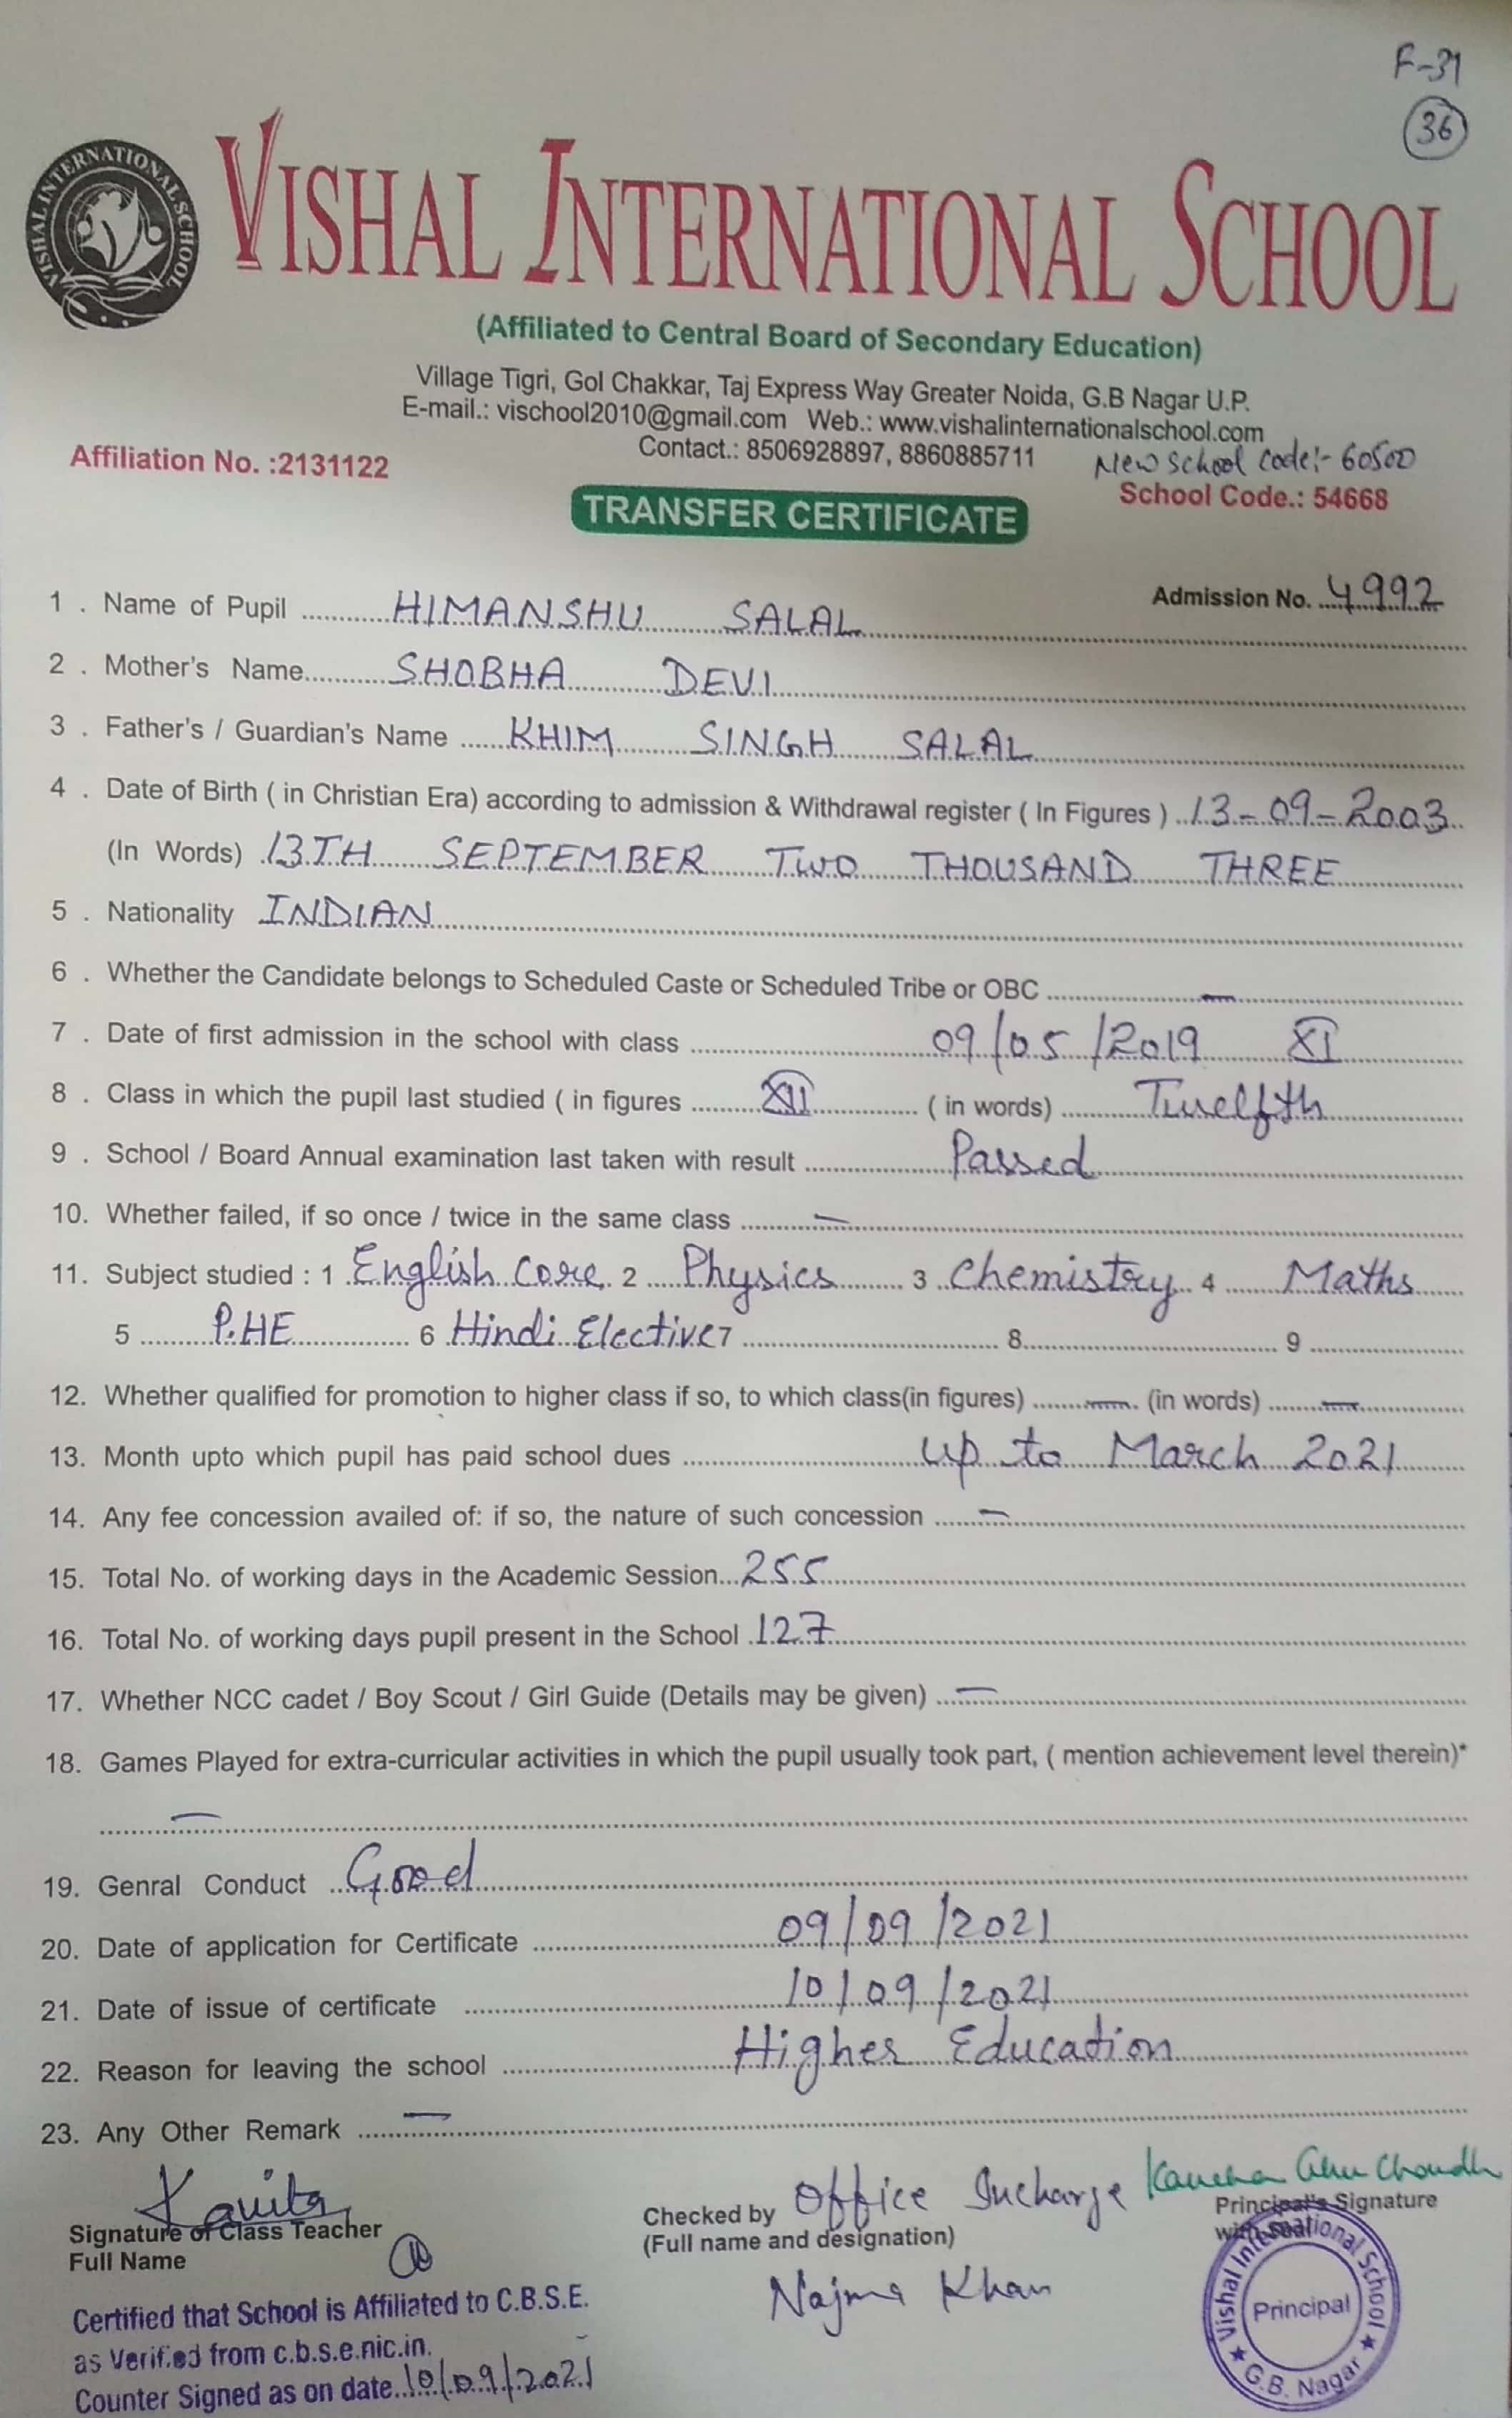 F-31
36
VISHAL INTERNATIONAL SCHOOL
VISHAL INTERNATIONAL SCHOOL
(Affiliated to Central Board of Secondary Education)
Village Tigri, Gol Chakkar, Taj Express Way Greater Noida, G.B Nagar U.P.
E-mail.: vischool2010@gmail.com Web.: www.vishalinternationalschool.com
Contact.: 8506928897, 8860885711
New School Code:- 60500
Affiliation No. :2131122
School Code.: 54668
TRANSFER CERTIFICATE
Admission No. 4992
1 . Name of Pupil HIMANSHU SALAL
2 . Mother's Name SHOBHA DEVI
3 . Father's / Guardian's Name KHIM SINGH SALAL
4 . Date of Birth ( in Christian Era) according to admission & Withdrawal register ( In Figures ) 13-09-2003
(In Words) 13TH SEPTEMBER TWO THOUSAND THREE
5 . Nationality INDIAN
6 . Whether the Candidate belongs to Scheduled Caste or Scheduled Tribe or OBC —
7 . Date of first admission in the school with class 09/05/2019 XI
8 . Class in which the pupil last studied ( in figures XII ( in words) Twelfth
9 . School / Board Annual examination last taken with result Passed
10. Whether failed, if so once / twice in the same class —
11. Subject studied : 1 English Core 2 Physics 3 Chemistry 4 Maths
5 P.HE 6 Hindi Elective 7 8 9
12. Whether qualified for promotion to higher class if so, to which class(in figures) — (in words) —
13. Month upto which pupil has paid school dues up to March 2021
14. Any fee concession availed of: if so, the nature of such concession —
15. Total No. of working days in the Academic Session 255
16. Total No. of working days pupil present in the School 127
17. Whether NCC cadet / Boy Scout / Girl Guide (Details may be given) —
18. Games Played for extra-curricular activities in which the pupil usually took part, ( mention achievement level therein)*
—
19. Genral Conduct Good
20. Date of application for Certificate 09/09/2021
21. Date of issue of certificate 10/09/2021
22. Reason for leaving the school Higher Education
23. Any Other Remark —
Kavita
Signature of Class Teacher
Full Name
Checked by Office Incharge
(Full name and designation)
Najma Khan
Principal's Signature
with Seal
Vishal International School
Principal
G.B. Nagar
Certified that School is Affiliated to C.B.S.E.
as Verified from c.b.s.e.nic.in.
Counter Signed as on date 10/09/2021